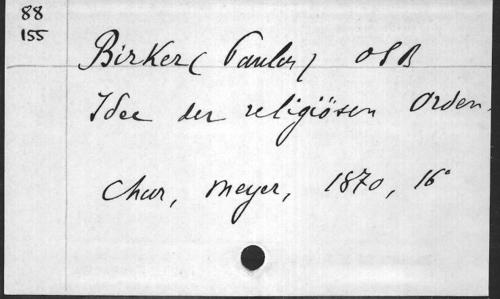 88
155
Birker (Paulus) OSB
Idee der religiösen Orden.
Chur, Meyer, 1870, 16°